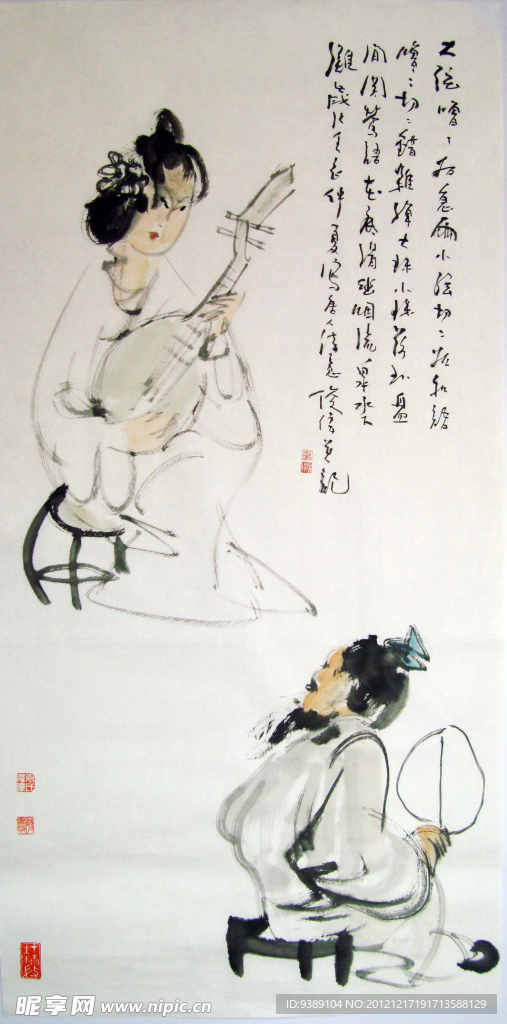 大弦嘈〻如急雨小弦切〻如私語
嘈〻切〻錯雜彈大珠小珠落玉盤
間關鶯語花底滑幽咽流泉水下
難歲次壬辰仲夏寫唐人詩意
昵享网 www.nipic.cn
ID:9389104 NO:20121217191713588129